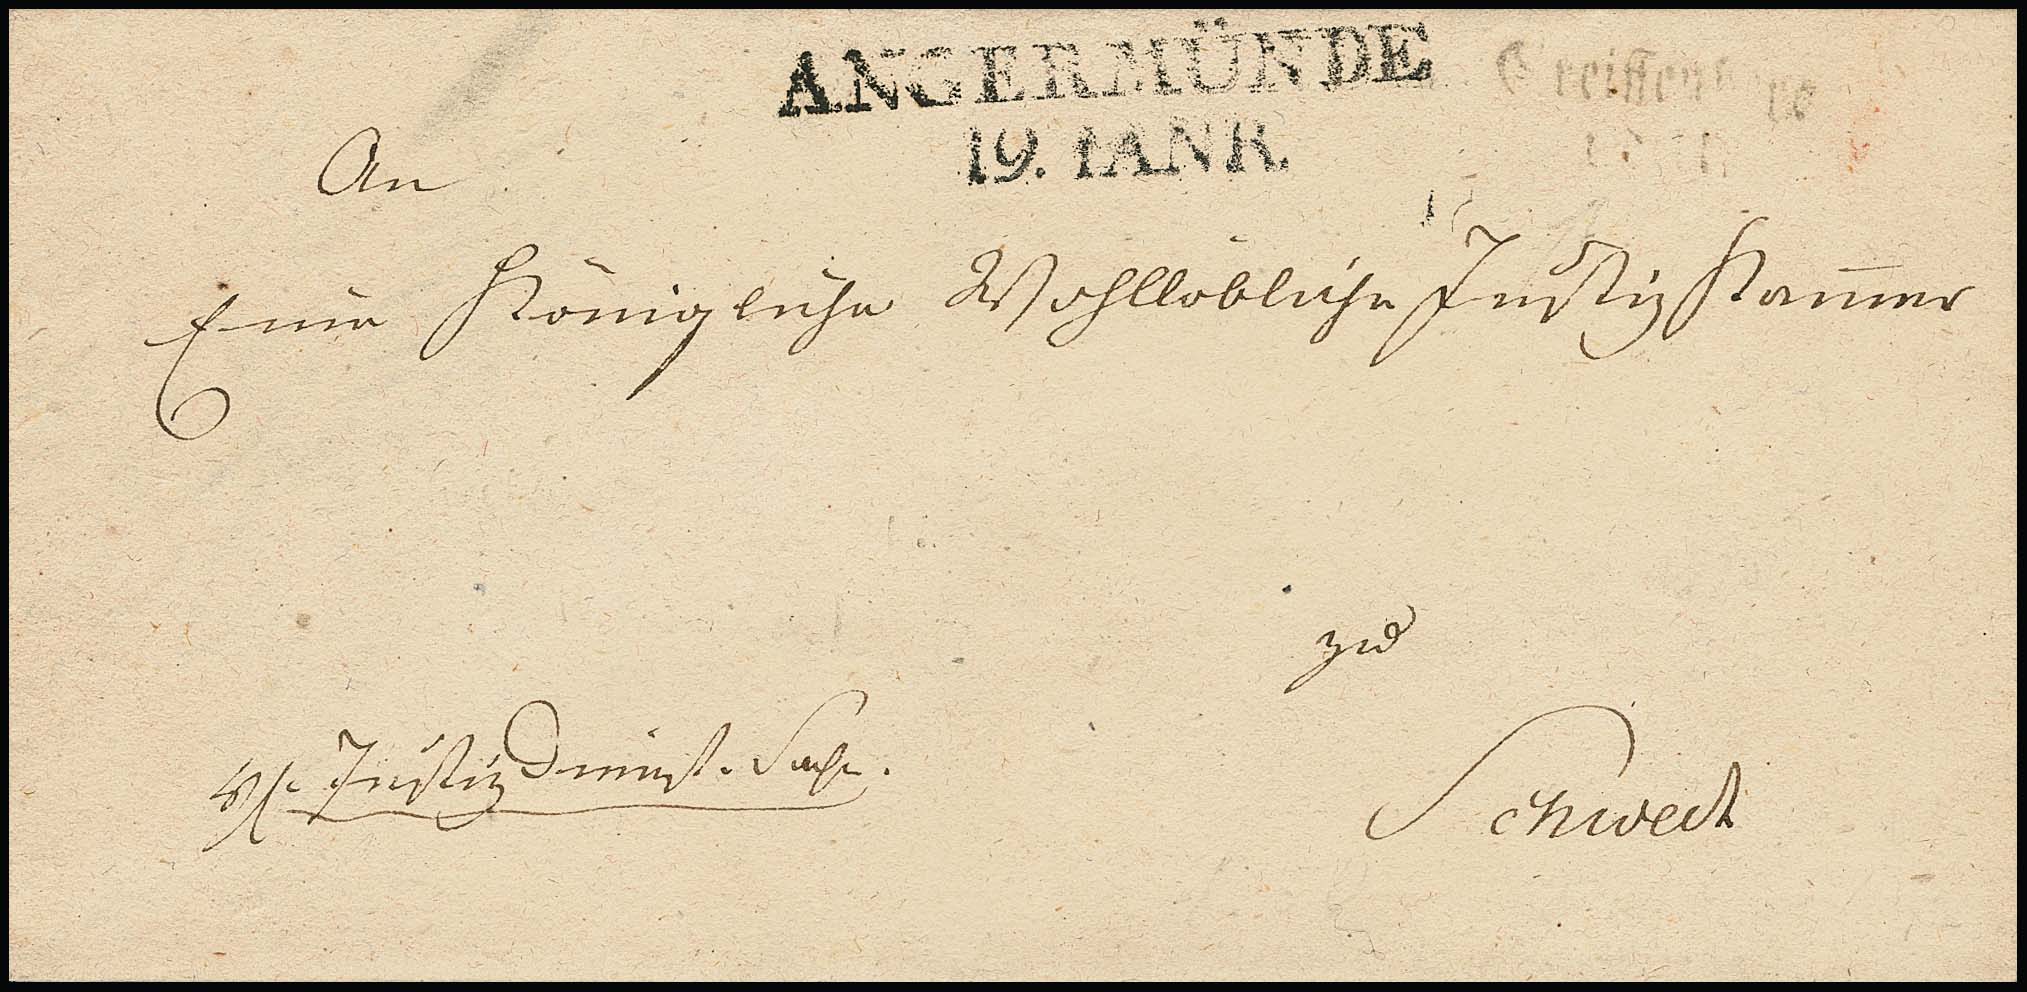 ANGERMÜNDE
19. IANR.
An
Eine Königliche Wohllöbliche Justiz Kammer
zu
Schwedt
Justiz Dienst. Sache.